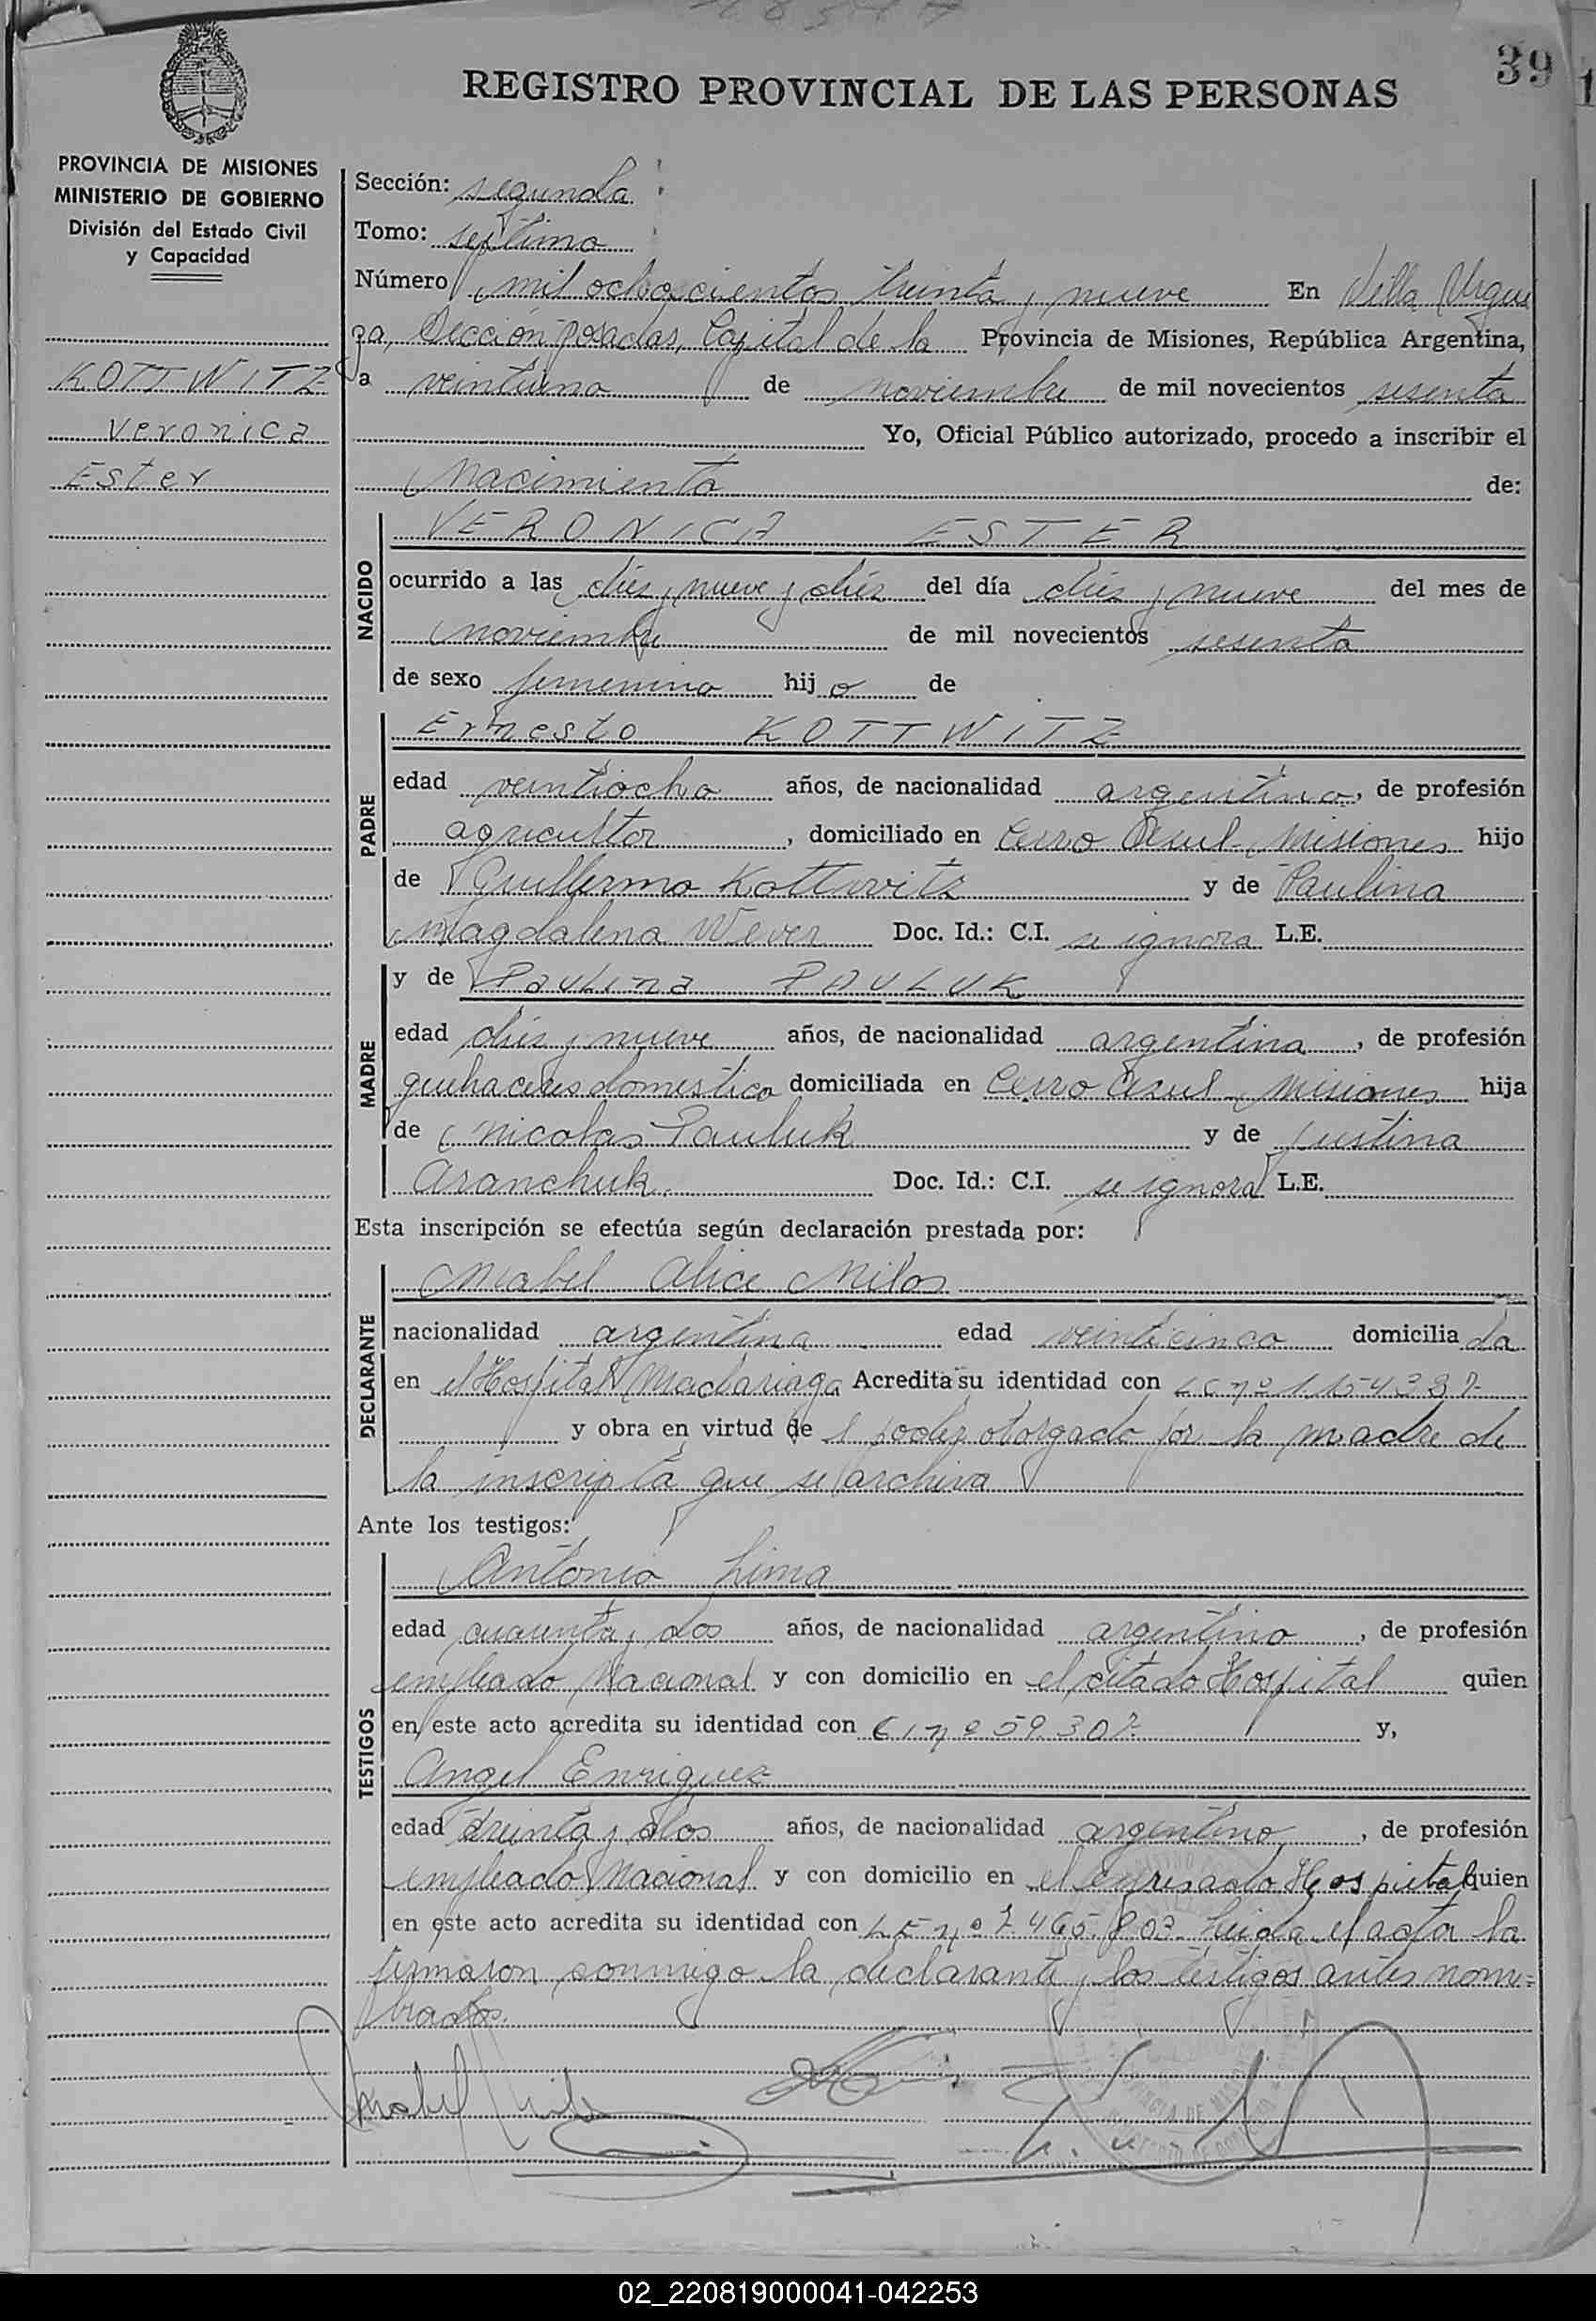 39
REGISTRO PROVINCIAL DE LAS PERSONAS
PROVINCIA DE MISIONES
MINISTERIO DE GOBIERNO
División del Estado Civil
y Capacidad
KOTTWITZ
Veronica
Ester
Sección: segunda
Tomo: septimo
Número mil ochocientos treinta y nueve En Villa Urqui
za, Sección posadas, Capital de la Provincia de Misiones, República Argentina,
a veintiuno de noviembre de mil novecientos sesenta
Yo, Oficial Público autorizado, procedo a inscribir el
Nacimiento de:
NACIDO
VERONICA ESTER
ocurrido a las diez y nueve y diez del día diez y nueve del mes de
noviembre de mil novecientos sesenta
de sexo femenino hijo de
PADRE
Ernesto KOTTWITZ
edad veintiocho años, de nacionalidad argentino, de profesión
agricultor, domiciliado en Cerro Azul - Misiones hijo
de Guillermo Kottwitz y de Paulina
Magdalena Wever Doc. Id.: C.I. se ignora L.E.
MADRE
y de Paulina PAULUK
edad diez y nueve años, de nacionalidad argentina, de profesión
quehaceres domestico domiciliada en Cerro Azul - Misiones hija
de Nicolas Pauluk y de Justina
Aranchuk. Doc. Id.: C.I. se ignora L.E.
Esta inscripción se efectúa según declaración prestada por:
DECLARANTE
Mabel Alice Milos
nacionalidad argentina edad veinticinco domiciliada
en el Hospital Madariaga Acredita su identidad con LC nº 1.154.337-
y obra en virtud de l poder otorgado por la madre de
la inscripta que se archiva
Ante los testigos:
TESTIGOS
Antonio Lima
edad cuarenta y dos años, de nacionalidad argentino, de profesión
empleado Nacional y con domicilio en el citado Hospital quien
en este acto acredita su identidad con CI nº 59.307- y,
Angel Enriquez
edad treinta y dos años, de nacionalidad argentino, de profesión
empleado Nacional y con domicilio en el expresado Hospital quien
en este acto acredita su identidad con LE nº 7.465.803. Leida el acta la
firmaron conmigo la declarante y los testigos antes nom-
brados.
02_220819000041-042253